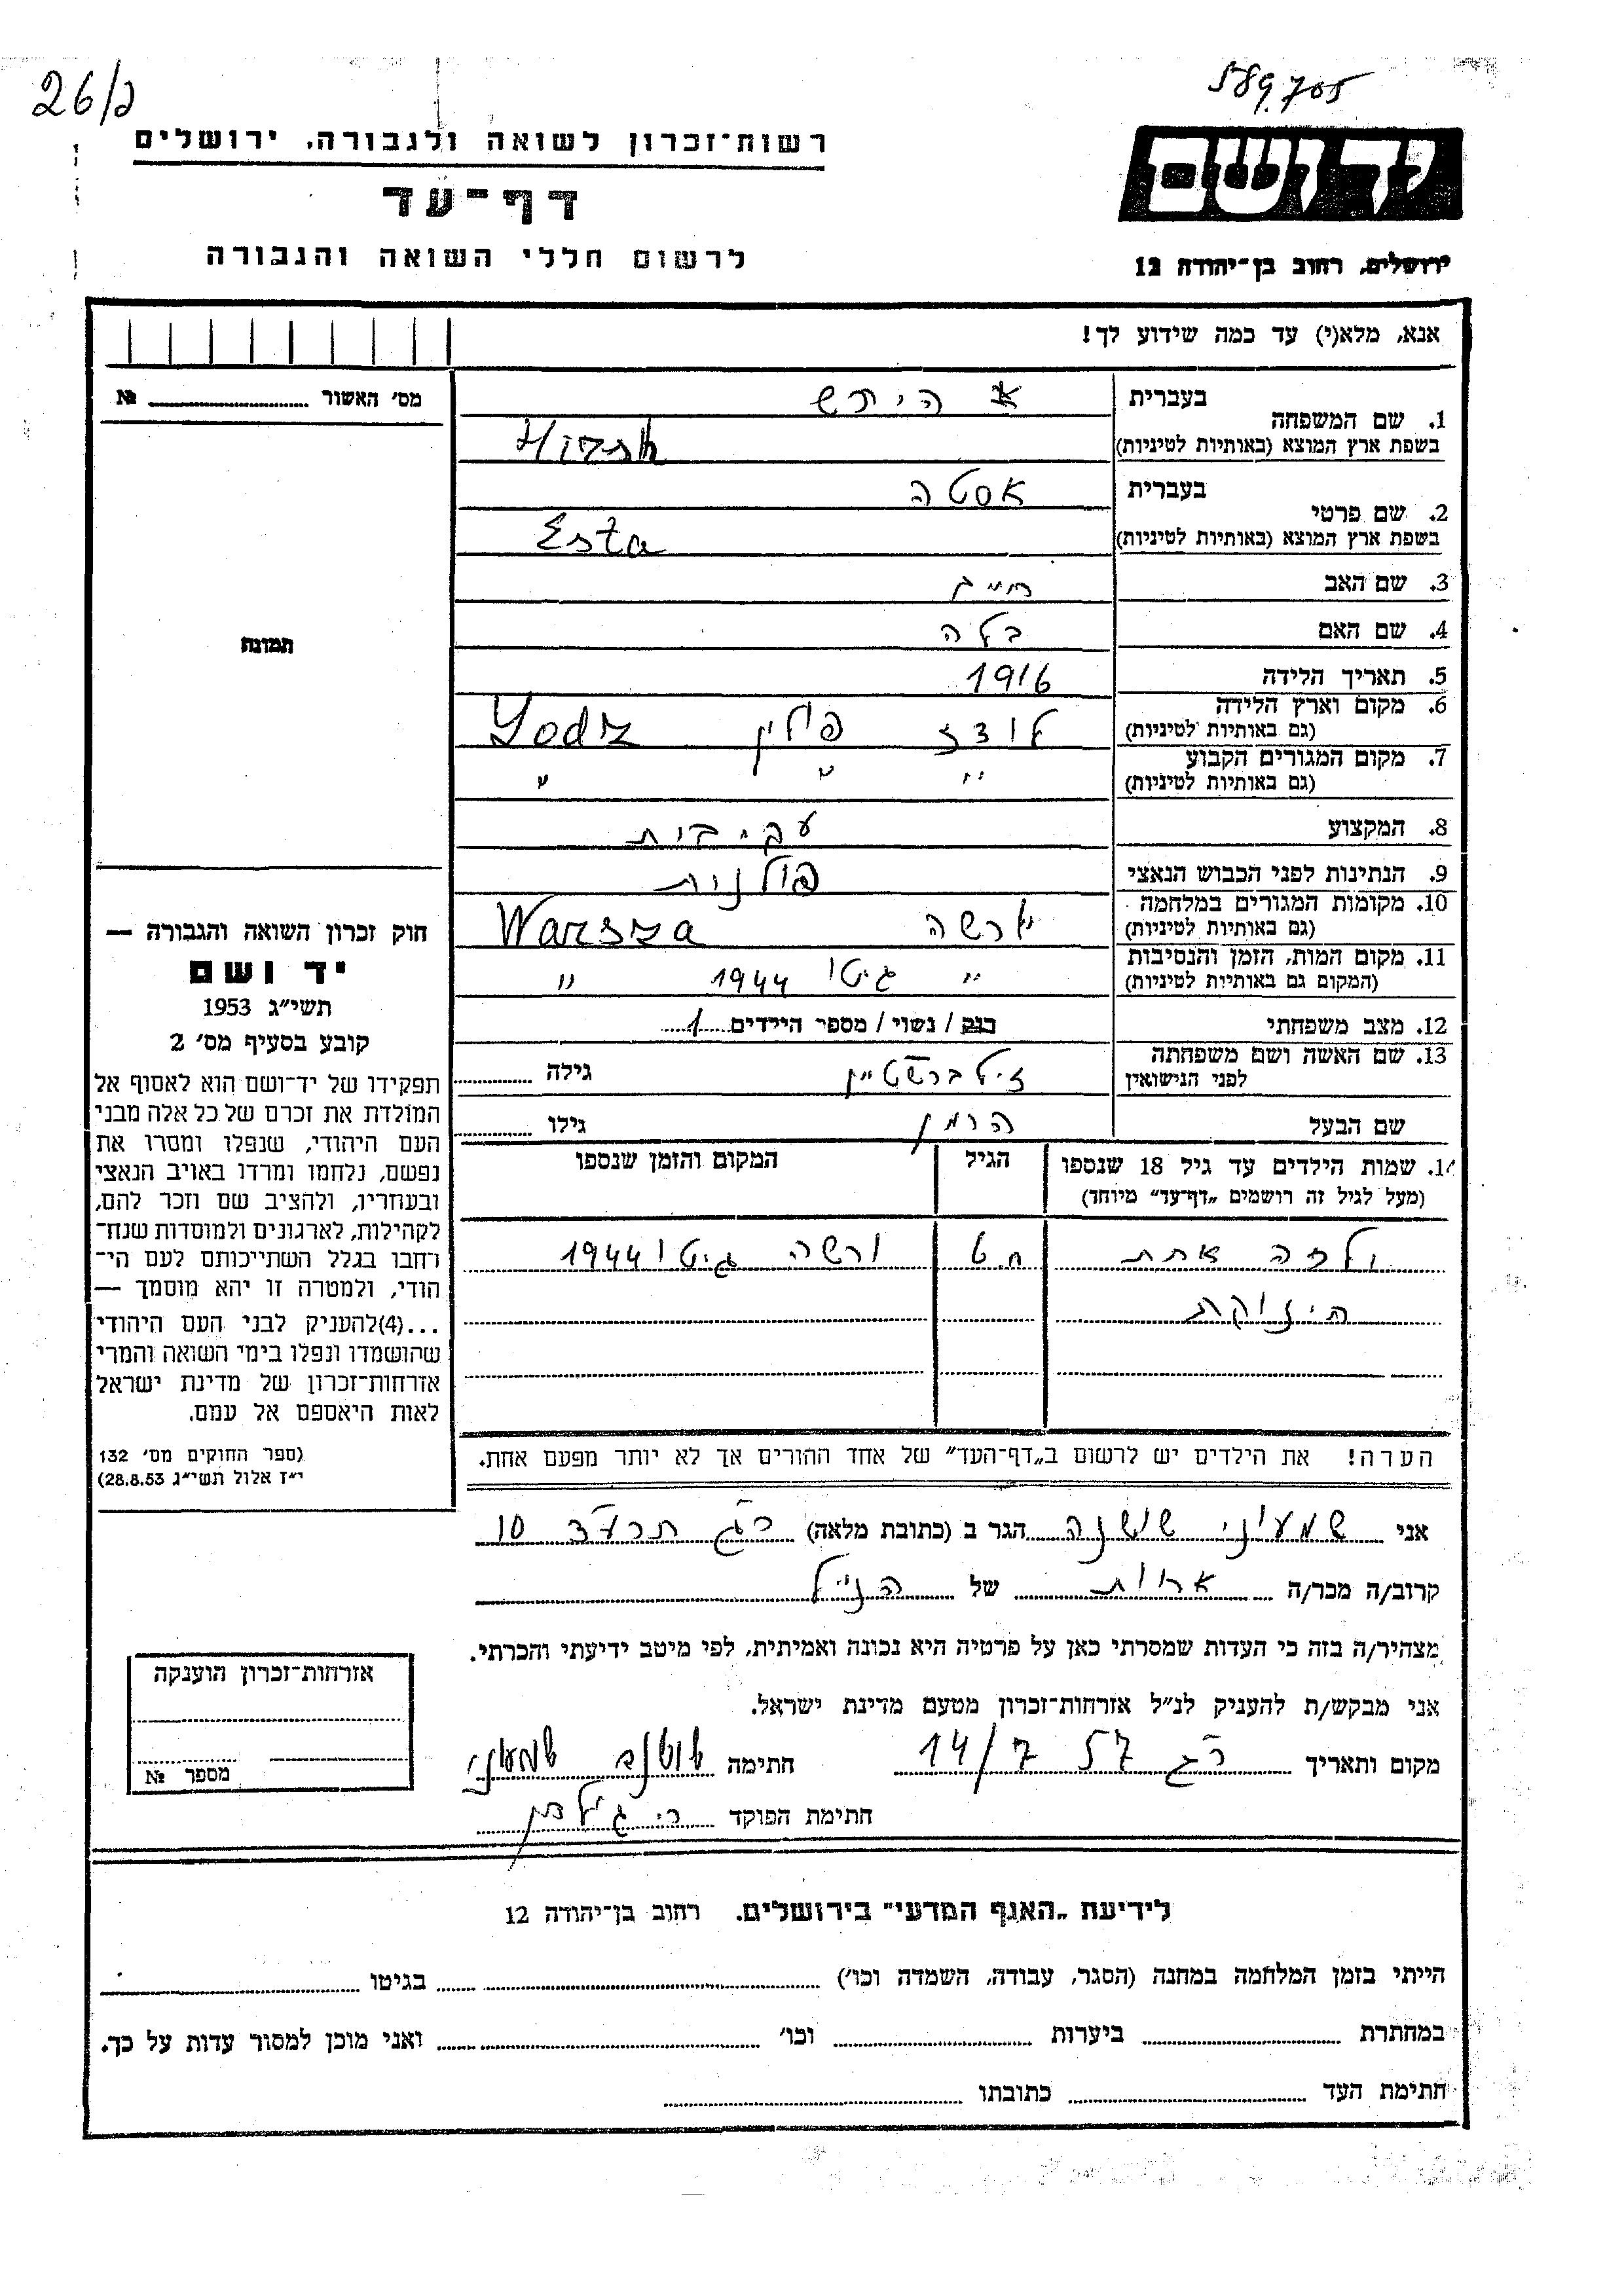 589.705
26/ג
יד ושם
רשות־זכרון לשואה ולגבורה, ירושלים
דף־עד
לרשום חללי השואה והגבורה
ירושלים, רחוב בן־יהודה 12
אנא, מלא(י) עד כמה שידוע לך!
מס׳ האשור № 
בעברית
הירש
1. שם המשפחה
בשפת ארץ המוצא (באותיות לטיניות)
בעברית אסטה
2. שם פרטי
בשפת ארץ המוצא (באותיות לטיניות) Esta
3. שם האב חיים
4. שם האם בלה
5. תאריך הלידה 1916
6. מקום וארץ הלידה
(גם באותיות לטיניות) לודז פולין Lodz
7. מקום המגורים הקבוע
(גם באותיות לטיניות) " " "
8. המקצוע
9. הנתינות לפני הכבוש הנאצי פולנית
10. מקומות המגורים במלחמה
(גם באותיות לטיניות) ורשה Warsza
11. מקום המות, הזמן והנסיבות
(המקום גם באותיות לטיניות) " גיטו 1944 "
12. מצב משפחתי רווק / נשוי / מספר הילדים 1
13. שם האשה ושם משפחתה
לפני הנישואין זילברשטיין גילה
שם הבעל הרמן גילו
14. שמות הילדים עד גיל 18 שנספו
(מעל לגיל זה רושמים „דף־עד” מיוחד)
הגיל
המקום והזמן שנספו
ילדה אחת ורשה גיטו 1944
תינוקת
הערה! את הילדים יש לרשום ב„דף־העד” של אחד ההורים אך לא יותר מפעם אחת.
תמונה
חוק זכרון השואה והגבורה —
יד ושם
תשי״ג 1953
קובע בסעיף מס׳ 2
תפקידו של יד־ושם הוא לאסוף אל
המולדת את זכרם של כל אלה מבני
העם היהודי, שנפלו ומסרו את
נפשם, נלחמו ומרדו באויב הנאצי
ובעוזריו, ולהציב שם וזכר להם,
לקהילות, לארגונים ולמוסדות שנח־
רבו בגלל השתייכותם לעם הי־
הודי, ולמטרה זו יהא מוסמך —
...(4)להעניק לבני העם היהודי
שהושמדו ונפלו בימי השואה והמרי
אזרחות־זכרון של מדינת ישראל
לאות היאספם אל עמם.
(ספר החוקים מס׳ 132
י״ז אלול תשי״ג 28.8.53)
אני שמעוני שושנה הגר ב (כתובת מלאה) רג תרע״ד 10
קרוב/ה מכר/ה אחות של הנ״ל
מצהיר/ה בזה כי העדות שמסרתי כאן על פרטיה היא נכונה ואמיתית, לפי מיטב ידיעתי והכרתי.
אני מבקש/ת להעניק לנ״ל אזרחות־זכרון מטעם מדינת ישראל.
מקום ותאריך רג 14/7 57 חתימה שושנה שמעוני
חתימת הפוקד
אזרחות־זכרון הוענקה
מספר №
לידיעת „האגף המדעי” בירושלים. רחוב בן־יהודה 12
הייתי בזמן המלחמה במחנה (הסגר, עבודה, השמדה וכו׳) בגיטו
במחתרת ביערות וכו׳ ואני מוכן למסור עדות על כך.
חתימת העד כתובתו